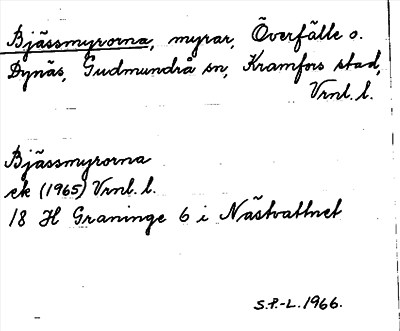 Bjässmyrorna, myrar, Överfälle o.
Dynäs, Gudmundrå sn, Kramfors stad,
Vrnl. l.
Bjässmyrorna
ek (1965) Vrnl. l.
18 H Graninge 6 i Nästvattnet
S.P.-L. 1966.